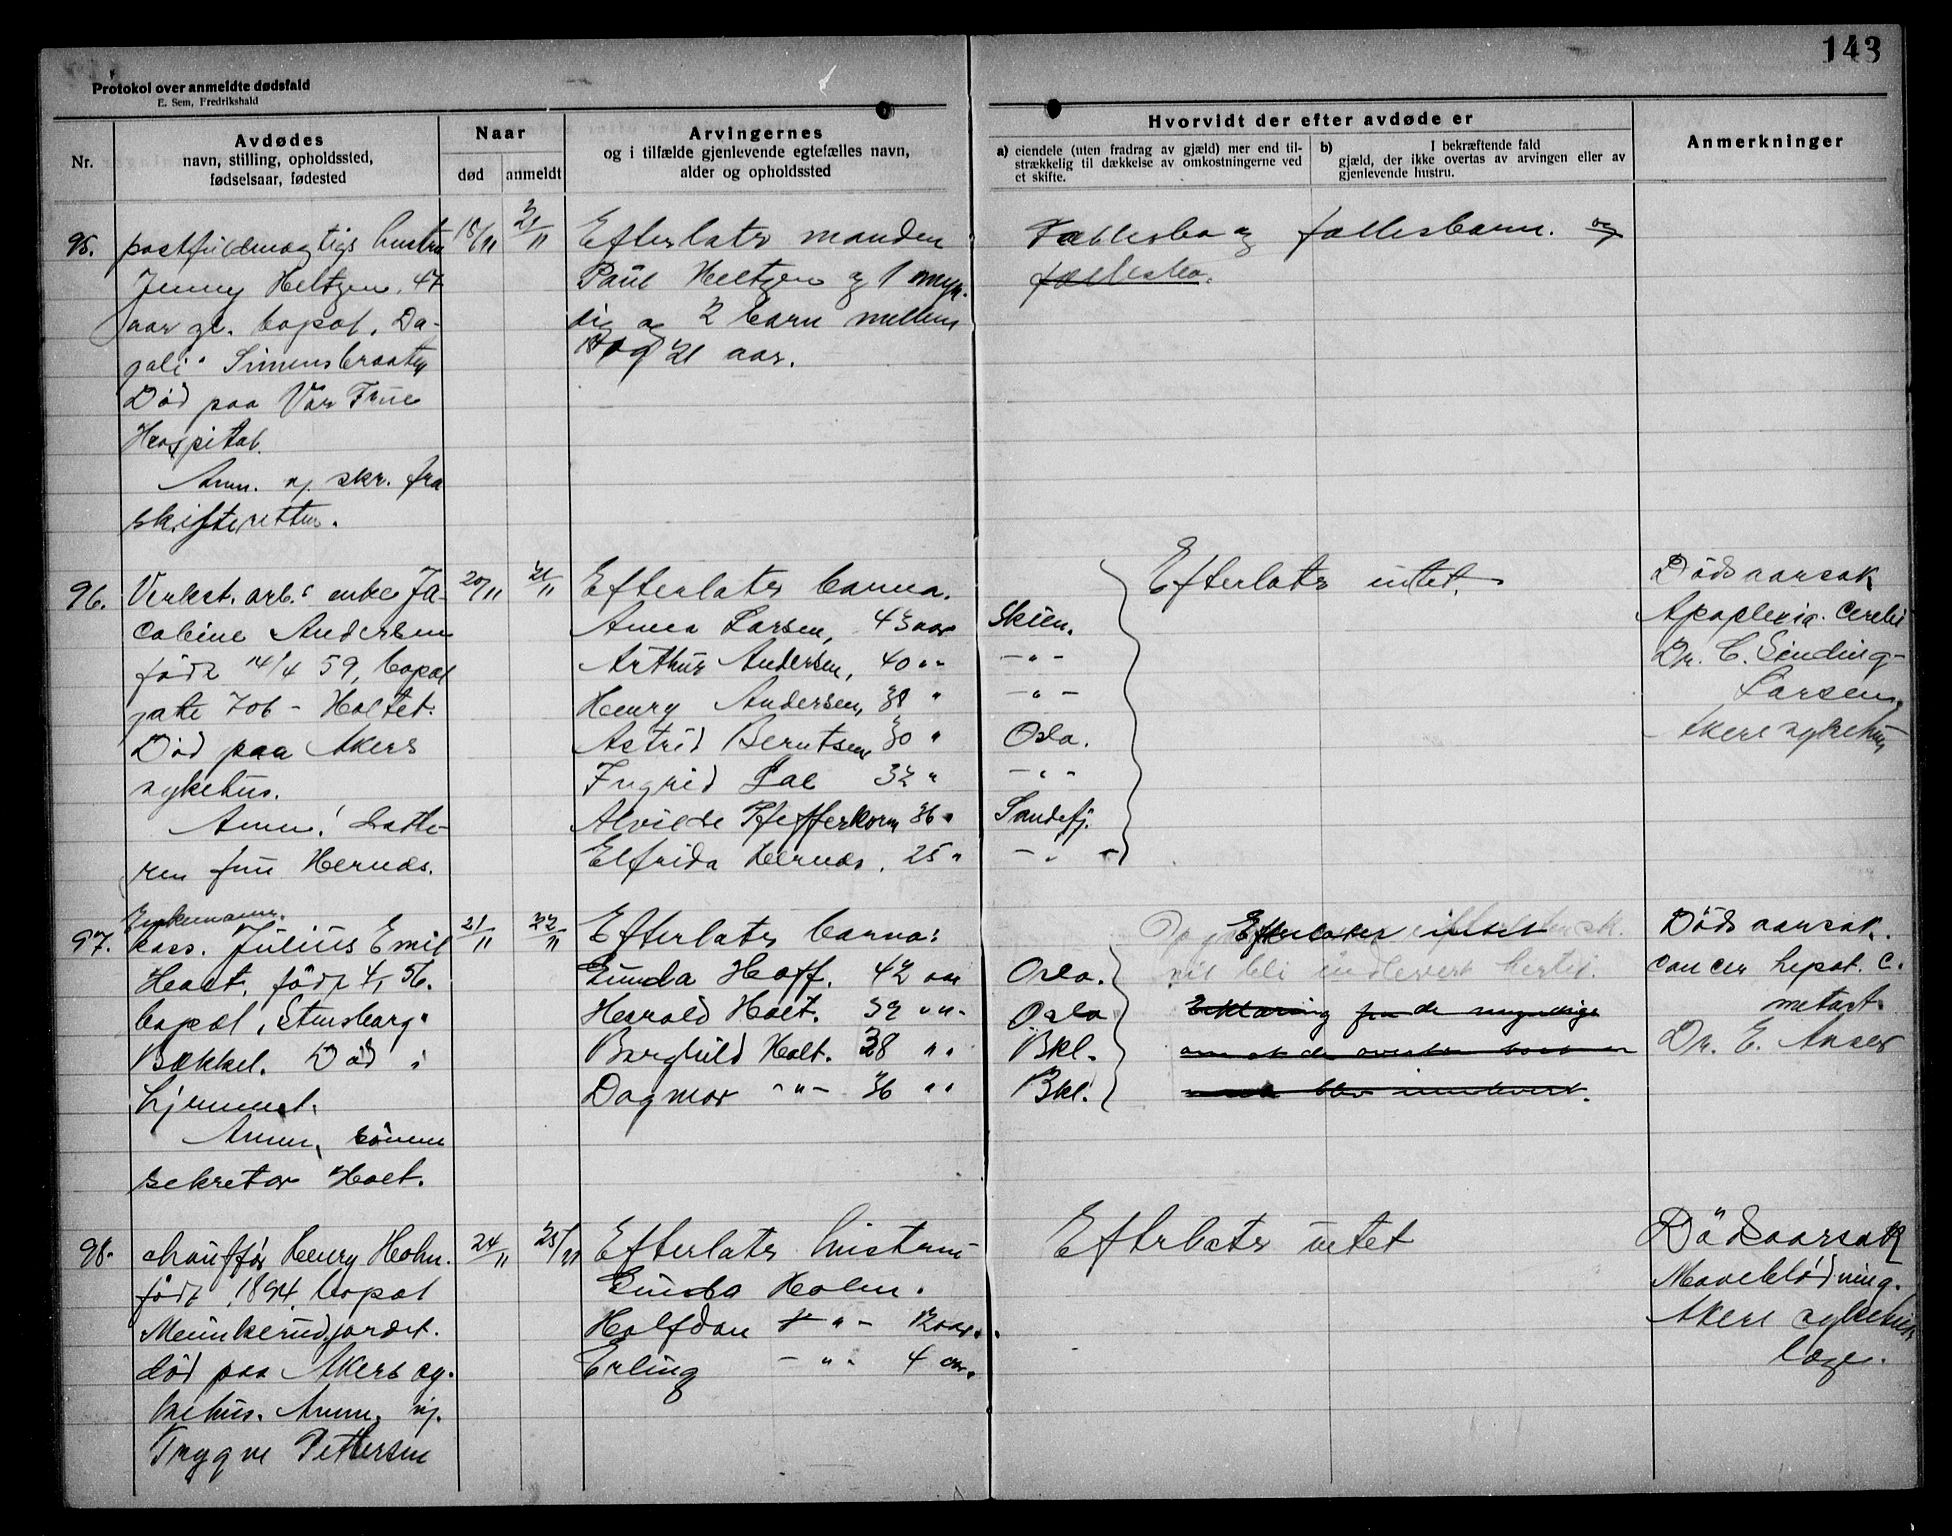 143
Protokol over anmeldte dødsfald
E. Sem, Fredrikshald
Nr.
Avdødes
navn, stilling, opholdssted,
fødselsaar, fødested
Naar
død
anmeldt
Arvingernes
og i tilfælde gjenlevende egtefælles navn,
alder og opholdssted
Hvorvidt der efter avdøde er
a) eiendele (uten fradrag av gjæld) mer end til-
strækkelig til dækkelse av omkostningerne ved
et skifte.
b) I bekræftende fald
gjæld, der ikke overtas av arvingen eller av
gjenlevende hustru.
Anmerkninger
95. postfuldmægtigs hustru 18/11 21/11 Efterlater manden Fællesbo og fællesbarn. og
Jenny Heltzen, 47 Paul Heltzen og 1 myn- fællesbo.
aar gl. bopæl, Da-
dig og 2 barn mellem
gali, Simensbraaten 18 og 21 aar.
Død paa Vor Frue
Hospital.
Anm. av skr. fra
skifteretten.
96. Verkst. arb.s enke Ja- 20/11 21/11 Efterlater barna. Efterlater intet. Dödsaarsak
cobine Andersen Anna Larsen, 43 aar Skien. Apoplexia. cerebri
född 14/4 59, bopæl Arthur Andersen, 40 " - " - Dr. C. Sinding-
gate 706 - Holtet. Henry Andersen, 38 " - " - Larsen,
Død paa Akers Astrid Berntsen 30 " Oslo. Akers sykehus
sykehus. Ingrid 32 " - " -
Anm. datte- Alvilde Pfefferkorn 36 " Sandefj.
ren fru Hernæs. Elfrida Hernæs. 25 " - " -
Enkemann.
97. kass. Julius Emil 21/11 22/11 Efterlater barna: Efterlater intet Dödsaarsak.
Holt, född 4/1 56. Gunda Hoff. 42 aar Oslo. vil bli indlevert hertil. cancer hepat. c.
bopæl, Stensborg, Harald Holt. 39 " " Oslo Erklæring fra de myndige metast.
Bækkel. Död i Borghild Holt. 38 " " Bkl. Dr. E.
Ljunmost. Dagmar - " - 36 " " Bkl. blev innlevert.
Anm. sönnen
sekretær Holt.
98. chauffør Henry Holm. 24/11 25/11 Efterlater hustru Efterlater intet Dödsaarsak
född 1894, bopæl Gunda Holm. Maveblödning.
Munkerudjordet. Halfdan - " - 12 aar. Akers sykehus
død paa Akers sy- Erling - " - 4 aar. læge.
kehus. Anm. av.
Trygve Pettersen